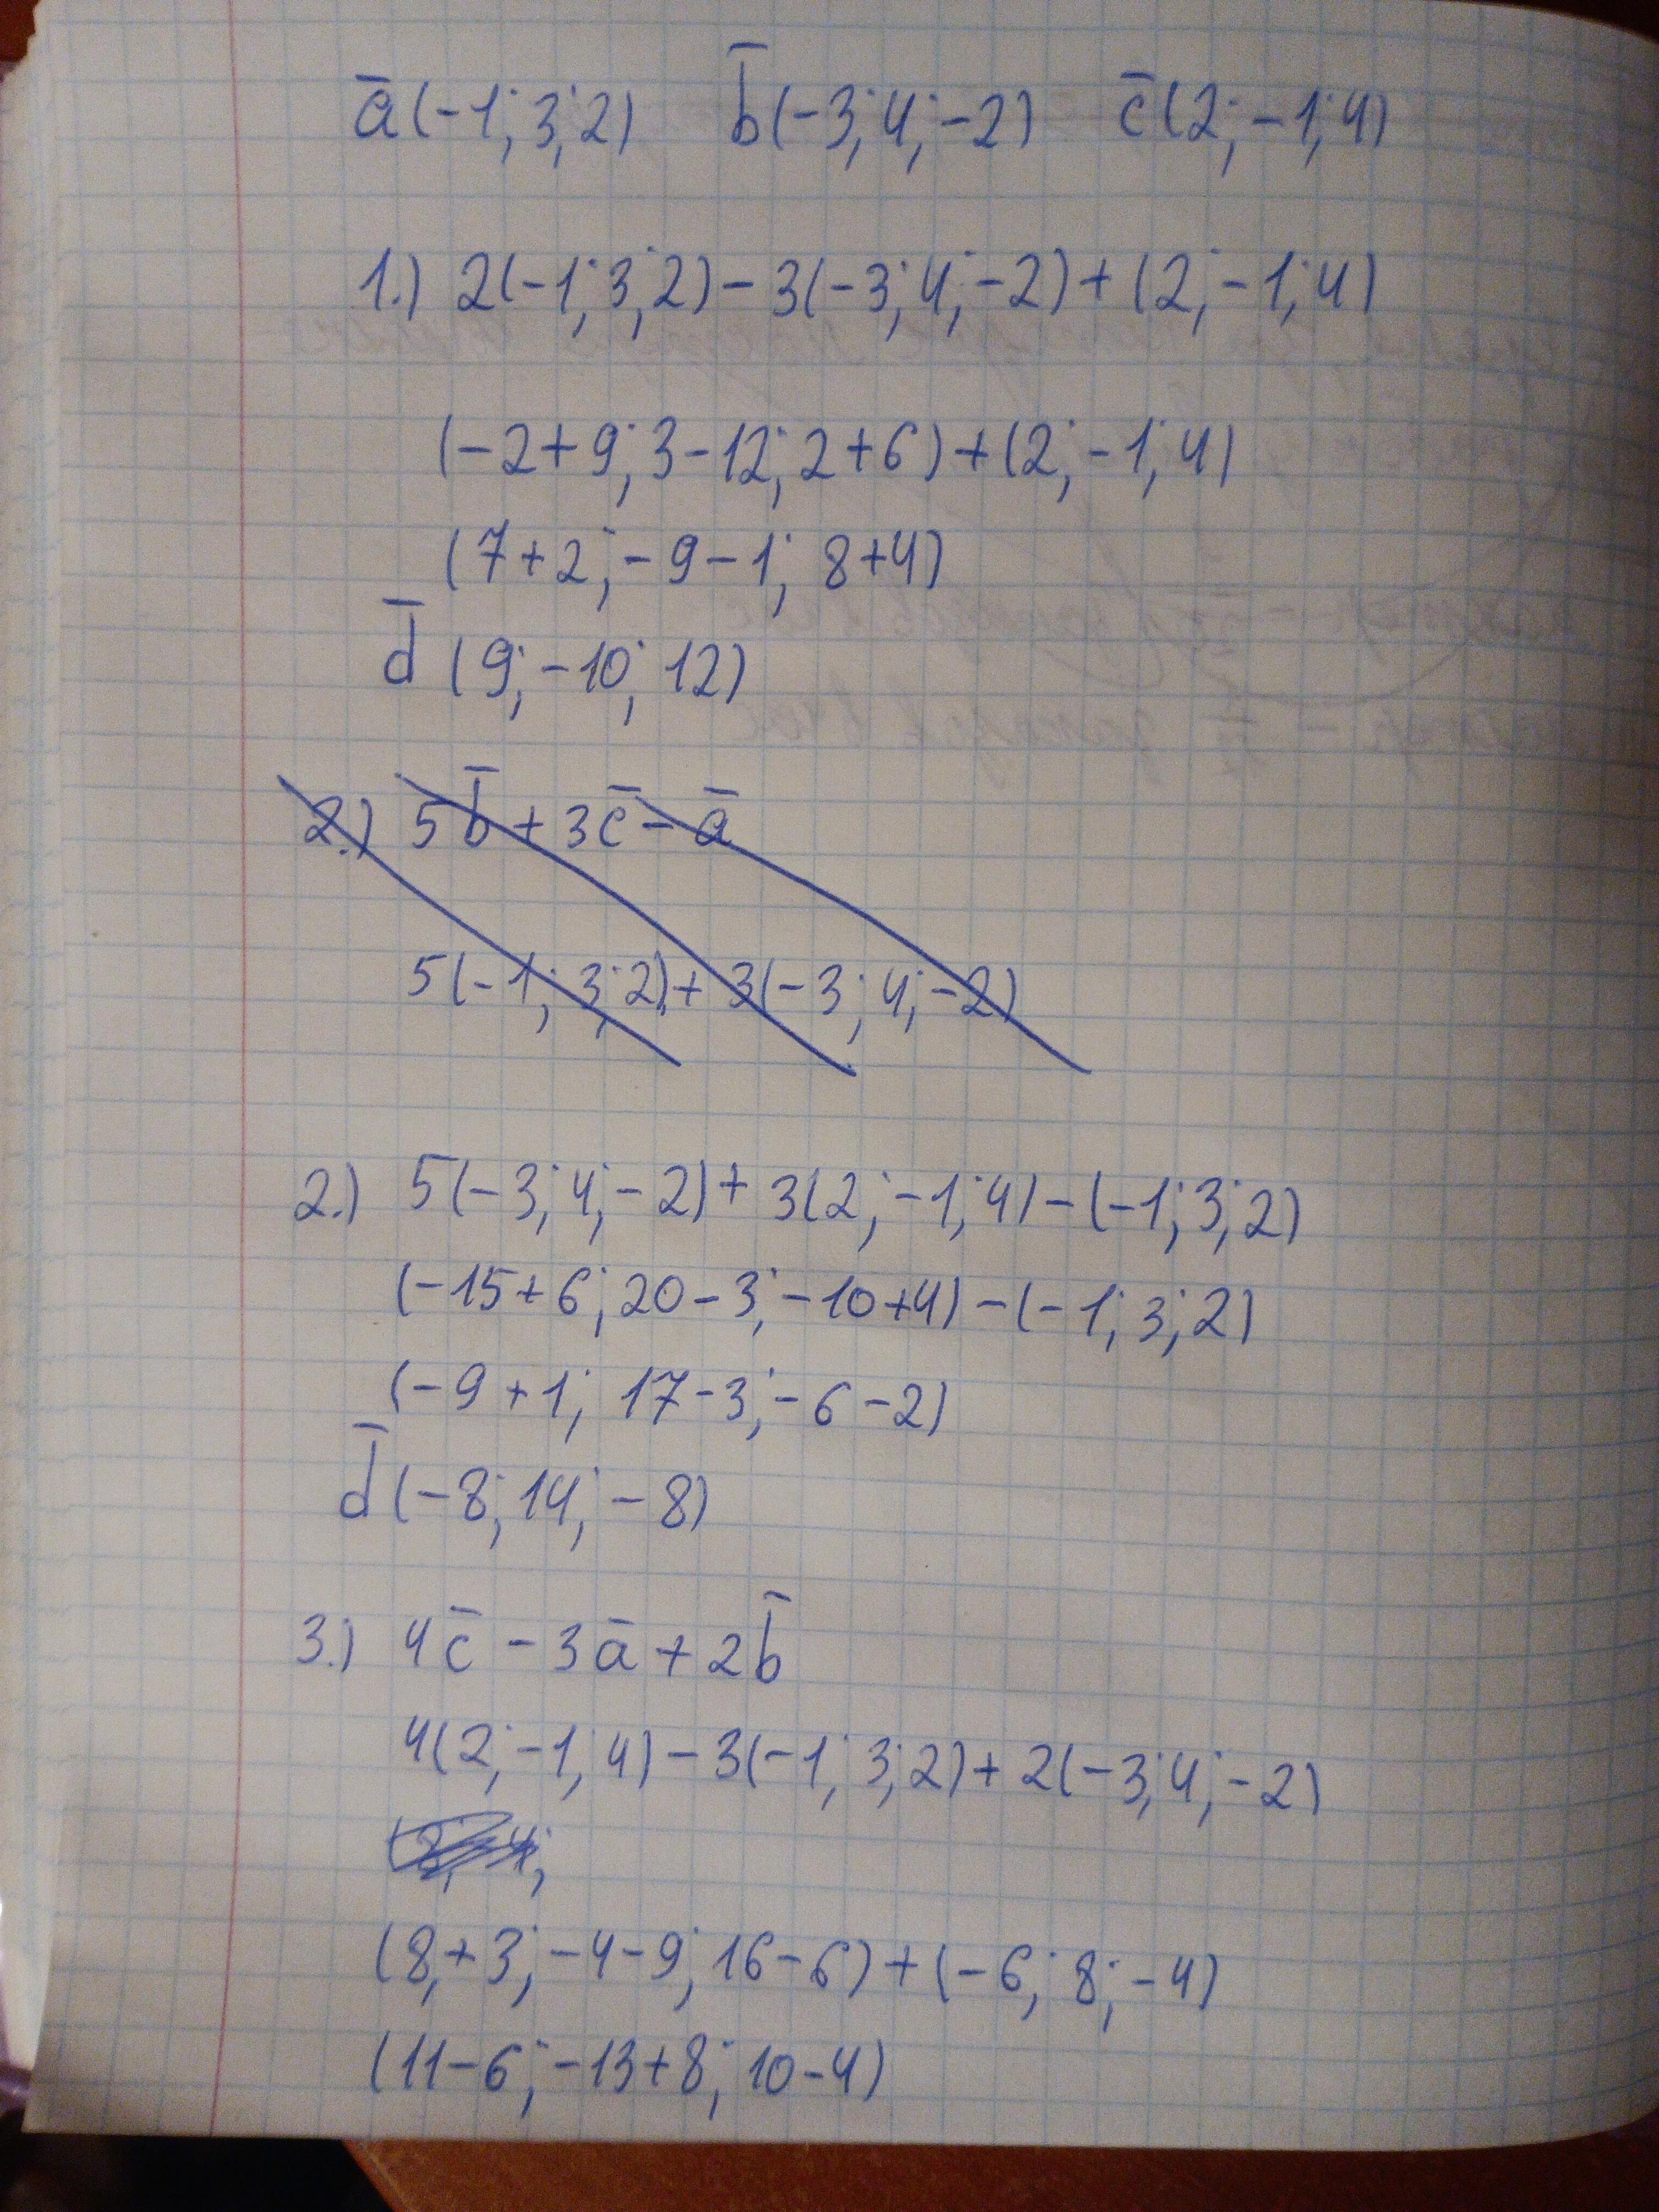 a̅(-1; 3; 2) b̅(-3; 4; -2) c̅(2; -1; 4)
1.) 2(-1; 3; 2) - 3(-3; 4; -2) + (2; -1; 4)
(-2+9; 3-12; 2+6) + (2; -1; 4)
(7+2; -9-1; 8+4)
d̅ (9; -10; 12)
2.) 5b̅ + 3c̅ - a̅
5(-1; 3; 2) + 3(-3; 4; -2)
2.) 5(-3; 4; -2) + 3(2; -1; 4) - (-1; 3; 2)
(-15+6; 20-3; -10+4) - (-1; 3; 2)
(-9+1; 17-3; -6-2)
d̅ (-8; 14; -8)
3.) 4c̅ - 3a̅ + 2b̅
4(2; -1; 4) - 3(-1; 3; 2) + 2(-3; 4; -2)
(8+3; -4-9; 16-6) + (-6; 8; -4)
(11-6; -13+8; 10-4)